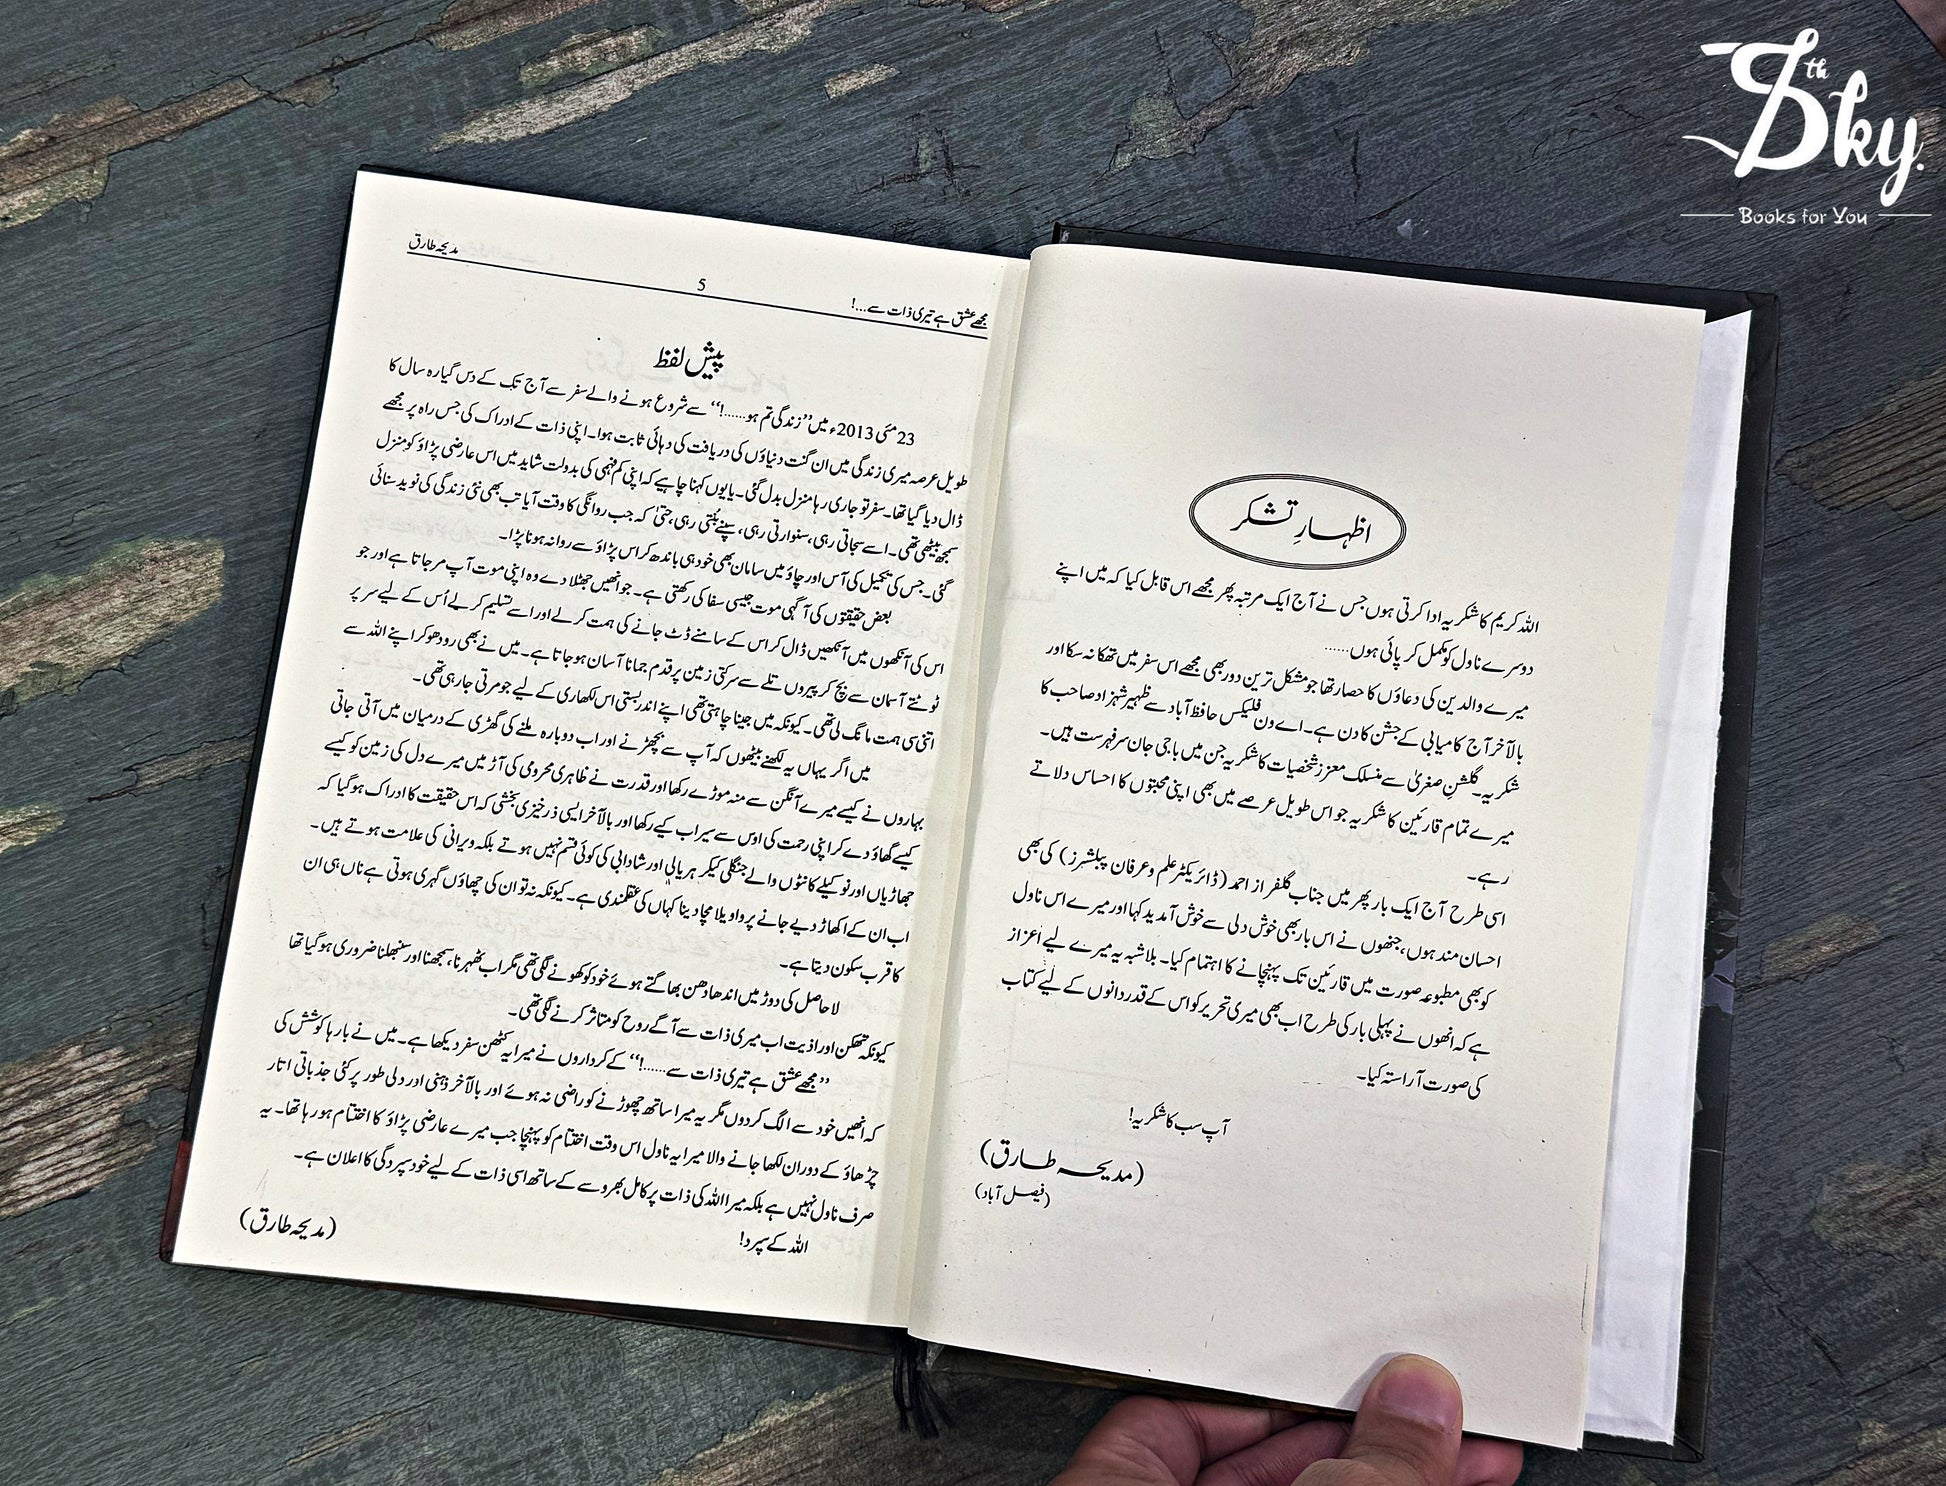 اظہارِ تشکر
اللہ کریم کا شکریہ ادا کرتی ہوں جس نے آج ایک مرتبہ پھر مجھے اس قابل کیا کہ میں اپنے
دوسرے ناول کو مکمل کر پائی ہوں......
میرے والدین کی دعاؤں کا حصار تھا جو مشکل ترین دور بھی مجھے اس سفر میں تھکا نہ سکا اور
بالآخر آج کامیابی کے جشن کا دن ہے۔ اے ون فلیکس حافظ آباد سے ظہیر شہزاد صاحب کا
شکریہ۔ گلشنِ صغریٰ سے منسلک معزز شخصیات کا شکریہ جن میں باجی جان سرفہرست ہیں۔
میرے تمام قارئین کا شکریہ جو اس طویل عرصے میں بھی اپنی محبتوں کا احساس دلاتے
رہے۔
اسی طرح آج ایک بار پھر میں جناب گلفراز احمد (ڈائریکٹر علم و عرفان پبلشرز) کی بھی
احسان مند ہوں، جنھوں نے اس بار بھی خوش دلی سے خوش آمدید کہا اور میرے اس ناول
کو بھی مطبوعہ صورت میں قارئین تک پہنچانے کا اہتمام کیا۔ بلاشبہ یہ میرے لیے اعزاز
ہے کہ انھوں نے پہلی بار کی طرح اب بھی میری تحریر کو اس کے قدردانوں کے لیے کتاب
کی صورت آراستہ کیا۔
آپ سب کا شکریہ!
(مدیحہ طارق)
(فیصل آباد)
مجھے عشق ہے تیری ذات سے...! 5 مدیحہ طارق
پیش لفظ
23 مئی 2013ء میں ”زندگی تم ہو......!“ سے شروع ہونے والے سفر سے آج تک کے دس گیارہ سال کا
طویل عرصہ میری زندگی میں ان گنت دنیاؤں کی دریافت کی دہائی ثابت ہوا۔ اپنی ذات کے ادراک کی جس راہ پر مجھے
ڈال دیا گیا تھا۔ سفر تو جاری رہا منزل بدل گئی۔ یا یوں کہنا چاہیے کہ اپنی کم فہمی کی بدولت شاید میں اس عارضی پڑاؤ کو منزل
سمجھ بیٹھی تھی۔ اسے سجاتی رہی، سنوارتی رہی، سپنے بُنتی رہی، حتیٰ کہ جب روانگی کا وقت آیا تب بھی نئی زندگی کی نوید سنائی
گئی۔ جس کی تکمیل کی آس اور چاؤ میں سامان بھی خود ہی باندھ کر اس پڑاؤ سے روانہ ہونا پڑا۔
بعض حقیقتوں کی آگہی موت جیسی سفاکی رکھتی ہے۔ جو انھیں جھٹلا دے وہ اپنی موت آپ مر جاتا ہے اور جو
اس کی آنکھوں میں آنکھیں ڈال کر اس کے سامنے ڈٹ جانے کی ہمت کر لے اور اسے تسلیم کر لے اُس کے لیے سر پر
ٹوٹتے آسمان سے بچ کر پیروں تلے سے سرکتی زمین پر قدم جمانا آسان ہو جاتا ہے۔ میں نے بھی رو دھو کر اپنے اللہ سے
اتنی سی ہمت مانگ لی تھی۔ کیونکہ میں جینا چاہتی تھی اپنے اندر بستی اس لکھاری کے لیے جو مرتی جا رہی تھی۔
میں اگر یہاں یہ لکھنے بیٹھوں کہ آپ سے بچھڑنے اور اب دوبارہ ملنے کی گھڑی کے درمیان میں آتی جاتی
بہاروں نے کیسے میرے آنگن سے منہ موڑے رکھا اور قدرت نے ظاہری محرومی کی آڑ میں میرے دل کی زمین کو کیسے
کیسے گھاؤ دے کر اپنی رحمت کی اوس سے سیراب کیے رکھا اور بالآخر ایسی زرخیزی بخشی کہ اس حقیقت کا ادراک ہو گیا کہ
جھاڑیاں اور نوکیلے کانٹوں والے جنگلی کیکر ہریالی اور شادابی کی کوئی قسم نہیں ہوتے بلکہ ویرانی کی علامت ہوتے ہیں۔
اب ان کے اکھاڑ دیے جانے پر واویلا مچا دینا کہاں کی عقلمندی ہے۔ کیونکہ نہ تو ان کی چھاؤں گہری ہوتی ہے ناں ہی ان
کا قرب سکون دیتا ہے۔
لاحاصل کی دوڑ میں اندھا دھن بھاگتے ہوئے خود کو کھونے لگی تھی مگر اب ٹھہرنا، سمجھنا اور سنبھلنا ضروری ہو گیا تھا
کیونکہ تھکن اور اذیت اب میری ذات سے آگے روح کو متاثر کرنے لگی تھی۔
”مجھے عشق ہے تیری ذات سے......!“ کے کرداروں نے میرا یہ کٹھن سفر دیکھا ہے۔ میں نے بارہا کوشش کی
کہ انھیں خود سے الگ کر دوں مگر یہ میرا ساتھ چھوڑنے کو راضی نہ ہوئے اور بالآخر ذہنی اور دلی طور پر کئی جذباتی اتار
چڑھاؤ کے دوران لکھا جانے والا میرا یہ ناول اس وقت اختتام کو پہنچا جب میرے عارضی پڑاؤ کا اختتام ہو رہا تھا۔ یہ
صرف ناول نہیں ہے بلکہ میرا اللہ کی ذات پر کامل بھروسے کے ساتھ اسی ذات کے لیے خود سپردگی کا اعلان ہے۔
اللہ کے سپرد!
(مدیحہ طارق)
7th Sky.
Books for You